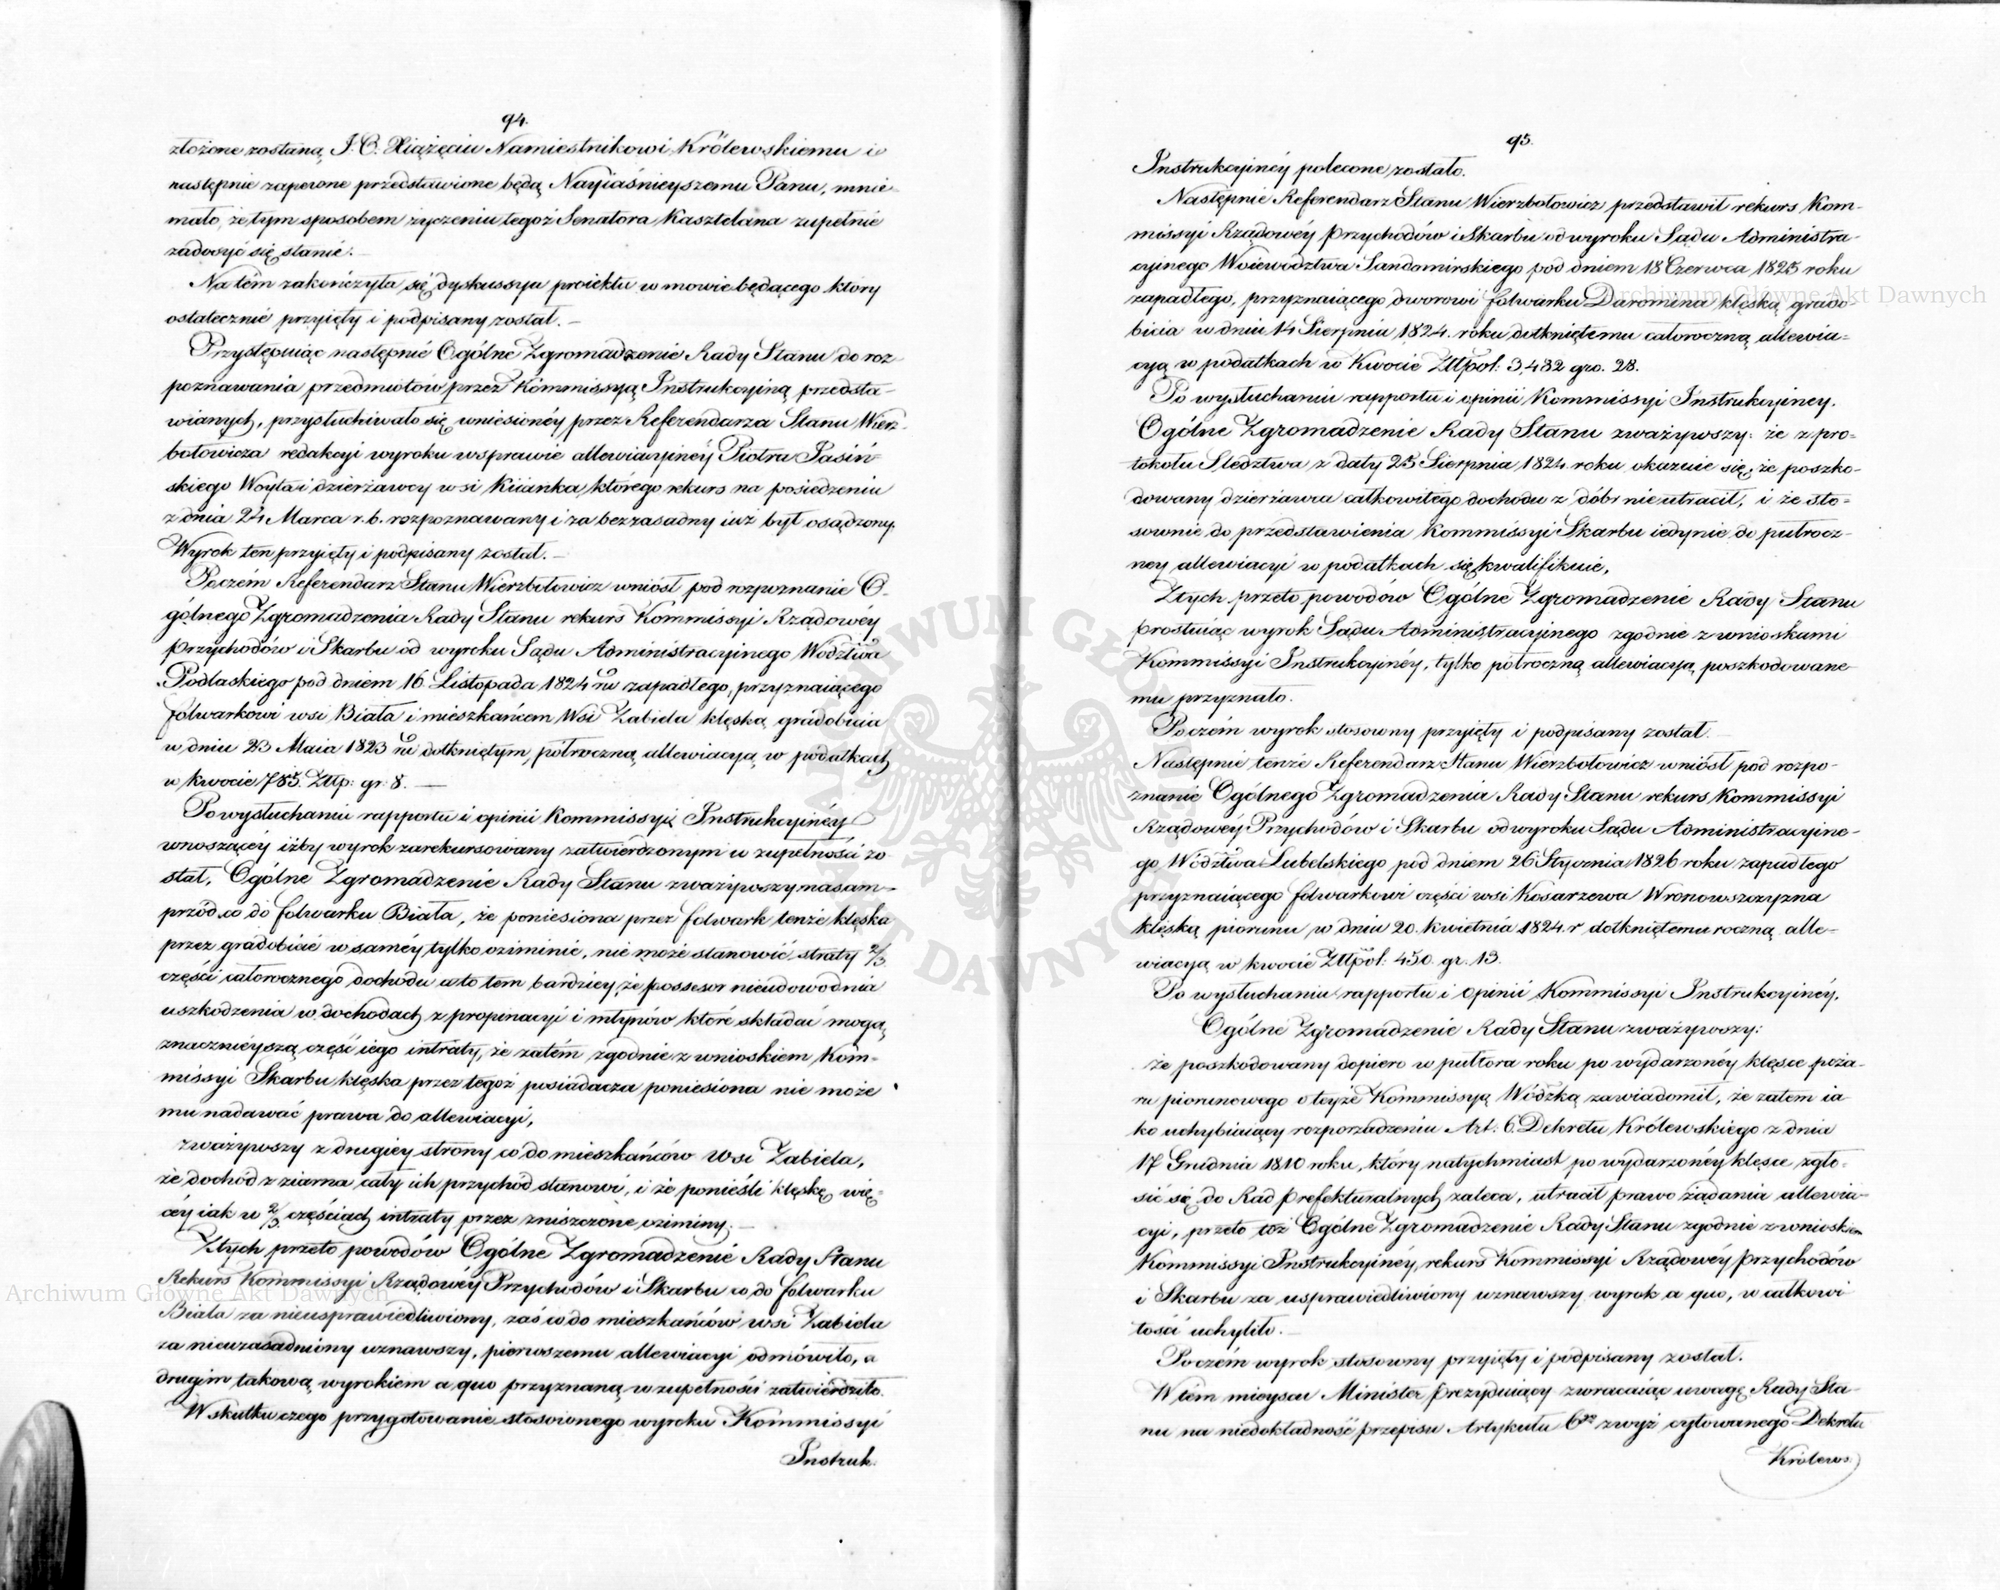 94.
złożone zostaną J. O. Xiążęciu Namiestnikowi Królewskiemu i
następnie zapewne przedstawione będą Nayiaśnieyszemu Panu, mnie-
mało, że tym sposobem życzeniu tegoż Senatora Kasztelana zupełnie
zadosyć się stanie. —
Na tém zakończyła się dyskussya proiektu w mowie będącego który
ostatecznie przyięty i podpisany został. —
Przystępuiąc następnie Ogólne Zgromadzenie Rady Stanu do roz
poznawania przedmiotów przez Kommissyią Instrukcyiną przedsta-
wianych, przysłuchiwało się wniesionéy przez Referendarza Stanu Wierz-
bołowicza redakcyi wyroku w sprawie allewiacyinéy Piotra Jasiń-
skiego Woyta i dzierżawcy wsi Kiianka, którego rekurs na posiedzeniu
z dnia 24 Marca r. b. rozpoznawany i za bezzasadny iuż był osądzony.
Wyrok ten przyięty i podpisany został. —
Poczém Referendarz Stanu Wierzbołowicz wniósł pod rozpoznanie O-
gólnego Zgromadzenia Rady Stanu rekurs Kommissyi Rządowéy
Przychodów i Skarbu od wyroku Sądu Administracyinego Wództwa
Podlaskiego pod dniem 16 Listopada 1824 ru zapadłego, przyznaiącego
folwarkowi wsi Biała i mieszkańcom Wsi Żabieła klęską gradobicia
w dniu 23 Maia 1823 ru dotkniętym, półroczną allewiacyą w podatkach
w kwocie 785. Złtp: gr. 8. —
Po wysłuchaniu rapportu i opinii Kommissyi Instrukcyinéy
wnoszącéy iżby wyrok zarekursowany zatwierdzonym w zupełności zo
stał, Ogólne Zgromadzenie Rady Stanu zważywszy nasam-
przód co do folwarku Biała, że poniesiona przez folwark tenże klęska
przez gradobicie w saméy tylko oziminie, nie może stanowić straty 2/3
części całorocznego dochodu a to tem bardziey, że possesor nieudowodnia
uszkodzenia w dochodach z propinacyi i młynów które składać mogą
znacznieyszą część iego intraty, że zatém zgodnie z wnioskiem Kom-
missyi Skarbu klęska przez tegoż posiadacza poniesiona nie może
mu nadawać prawa do allewiacyi,
zważywszy z drugiey strony co do mieszkańców wsi Żabieła,
że dochód z ziarna cały ich przychód stanowi, i że ponieśli klęskę wię-
céy iak w 2/3 częściach intraty przez zniszczone oziminy; —
Z tych przeto powodów Ogólne Zgromadzenie Rady Stanu
Rekurs Kommissyi Rządowéy Przychodów i Skarbu co do folwarku
Biała za nieusprawiedliwiony, zaś co do mieszkańców wsi Żabieła
za nieuzasadniony uznawszy, pierwszemu allewiacyi odmówiło, a
drugim takową wyrokiem a quo przyznaną w zupełności zatwierdziło.
W skutku czego przygotowanie stosownego wyroku Kommissyi
Instruk.
95.
Instrukcyinéy polecone zostało.
Następnie Referendarz Stanu Wierzbołowicz przedstawił rekurs Kom-
missyi Rządowéy Przychodów i Skarbu od wyroku Sądu Administra-
cyinego Woiewództwa Sandomirskiego pod dniem 18 Czerwca 1825 roku
zapadłego, przyznaiącego dworowi folwarku Daromina klęską grado-
bicia w dniu 14 Sierpnia 1824. roku dotkniętemu całoroczną allewia-
cyą w podatkach w Kwocie Złtpol: 3,482 gro. 28.
Po wysłuchaniu rapportu i opinii Kommissyi Instrukcyiney.
Ogólne Zgromadzenie Rady Stanu zważywszy: że z pro-
tokołu Śledztwa z daty 25 Sierpnia 1824 roku okazuie się, że poszko-
dowany dzierżawca całkowitego dochodu z dóbr nie utracił, i że sto-
sownie do przedstawienia Kommissyi Skarbu iedynie do półrocz-
ney allewiacyi w podatkach się kwalifikuie,
Z tych przeto powodów Ogólne Zgromadzenie Rady Stanu
prostuiąc wyrok Sądu Administracyinego zgodnie z wnioskami
Kommissyi Instrukcyinéy, tylko półroczną allewiacyą poszkodowane-
mu przyznało.
Poczém wyrok stosowny przyięty i podpisany został. —
Następnie tenże Referendarz Stanu Wierzbołowicz wniósł pod rozpo-
znanie Ogólnego Zgromadzenia Rady Stanu rekurs Kommissyi
Rządowéy Przychodów i Skarbu od wyroku Sądu Administracyine-
go Wództwa Lubelskiego pod dniem 26 Stycznia 1826 roku zapadłego
przyznaiącego folwarkowi części wsi Kosarzewa Wronowszczyzna
klęską piorunu w dniu 20. kwietnia 1824. r dotkniętemu roczną alle-
wiacyą w kwocie Złtpol: 450. gr. 13.
Po wysłuchaniu rapportu i opinii Kommissyi Instrukcyinéy,
Ogólne Zgromadzenie Rady Stanu zważywszy:
że poszkodowany dopiero w półtora roku po wydarzonéy klęsce poża-
ru piorunowego o teyże Kommissyą Wódzką zawiadomił, że zatem ia-
ko uchybiaiący rozporządzeniu Art. 6. Dekretu Królewskiego z dnia
17 Grudnia 1810 roku, który natychmiast po wydarzonéy klęsce zgło-
sić się do Rad Prefekturalnych zaleca, utracił prawo żądania allewia-
cyi, przeto też Ogólne Zgromadzenie Rady Stanu zgodnie z wnioskiem
Kommissyi Instrukcyinéy, rekurs Kommissyi Rządowéy Przychodów
i Skarbu za usprawiedliwiony uznawszy wyrok a quo, w całkowi
tości uchyliło. —
Poczém wyrok stosowny przyięty i podpisany został.
W tém mieyscu Minister Prezyduiący zwracaiąc uwagę Rady Sta-
nu na niedokładność przepisu Artykułu 6go zwyż cytowanego Dekretu
Królews.
Archiwum Główne Akt Dawnych
Archiwum Główne Akt Dawnych
ARCHIWUM GŁÓWNE AKT DAWNYCH